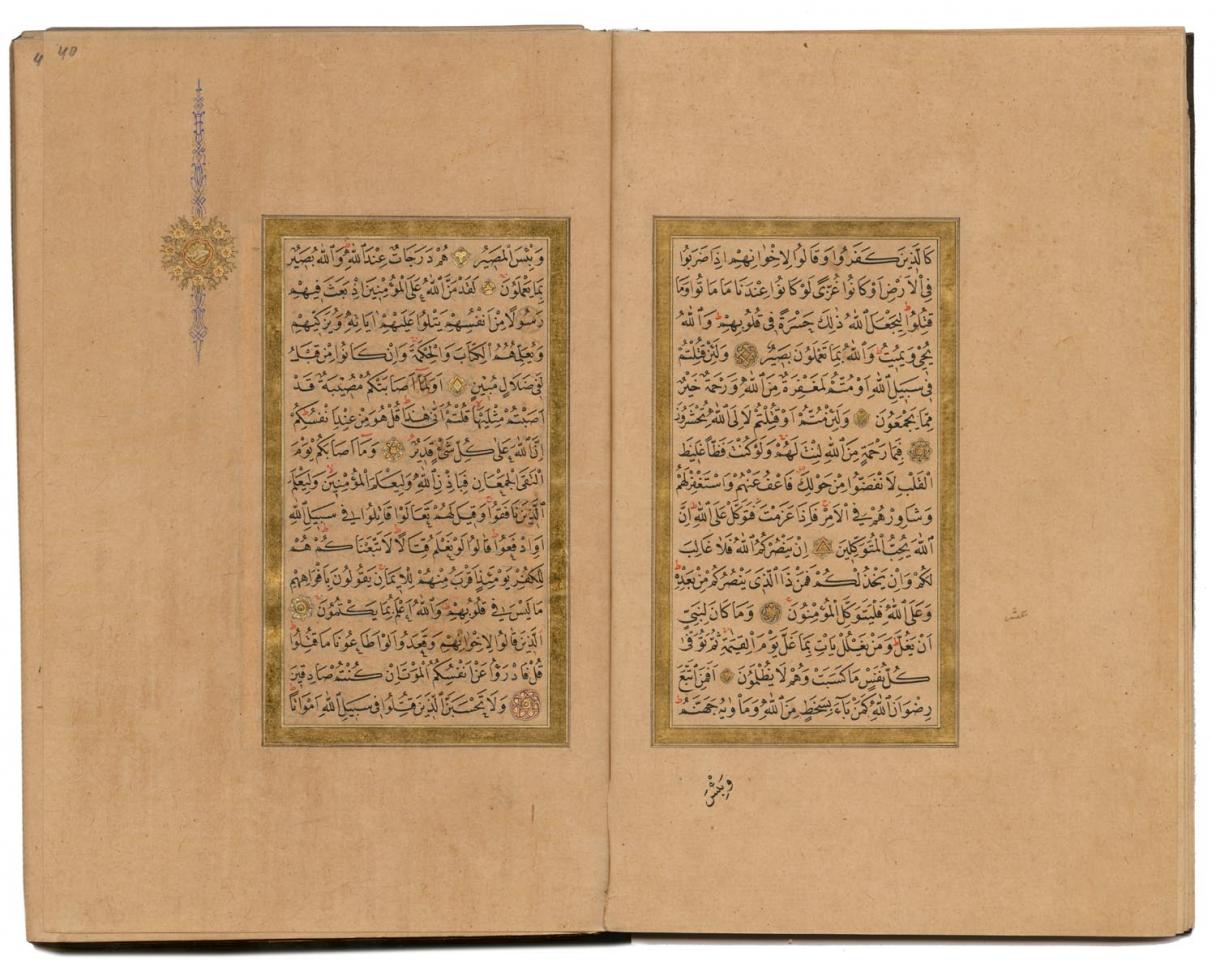 كَالَّذِينَ كَفَرُوا وَقَالُوا لِاِخْوَانِهِمْ اِذَا ضَرَبُوا
فِي الْاَرْضِ اَوْ كَانُوا غُزًّى لَوْ كَانُوا عِنْدَنَا مَا مَاتُوا وَمَا
قُتِلُوا لِيَجْعَلَ اللّٰهُ ذٰلِكَ حَسْرَةً فِي قُلُوبِهِمْ وَاللّٰهُ
يُحْيِي وَيُمِيتُ وَاللّٰهُ بِمَا تَعْمَلُونَ بَصِيرٌ وَلَئِنْ قُتِلْتُمْ
فِي سَبِيلِ اللّٰهِ اَوْ مُتُّمْ لَمَغْفِرَةٌ مِنَ اللّٰهِ وَرَحْمَةٌ خَيْرٌ
مِمَّا يَجْمَعُونَ وَلَئِنْ مُتُّمْ اَوْ قُتِلْتُمْ لَاِلَى اللّٰهِ تُحْشَرُونَ
فَبِمَا رَحْمَةٍ مِنَ اللّٰهِ لِنْتَ لَهُمْ وَلَوْ كُنْتَ فَظًّا غَلِيظَ
الْقَلْبِ لَانْفَضُّوا مِنْ حَوْلِكَ فَاعْفُ عَنْهُمْ وَاسْتَغْفِرْ لَهُمْ
وَشَاوِرْهُمْ فِي الْاَمْرِ فَاِذَا عَزَمْتَ فَتَوَكَّلْ عَلَى اللّٰهِ اِنَّ
اللّٰهَ يُحِبُّ الْمُتَوَكِّلِينَ اِنْ يَنْصُرْكُمُ اللّٰهُ فَلَا غَالِبَ
لَكُمْ وَاِنْ يَخْذُلْكُمْ فَمَنْ ذَا الَّذِي يَنْصُرُكُمْ مِنْ بَعْدِهِ
وَعَلَى اللّٰهِ فَلْيَتَوَكَّلِ الْمُؤْمِنُونَ وَمَا كَانَ لِنَبِيٍّ
اَنْ يَغُلَّ وَمَنْ يَغْلُلْ يَأْتِ بِمَا غَلَّ يَوْمَ الْقِيٰمَةِ ثُمَّ تُوَفّٰى
كُلُّ نَفْسٍ مَا كَسَبَتْ وَهُمْ لَا يُظْلَمُونَ اَفَمَنِ اتَّبَعَ
رِضْوَانَ اللّٰهِ كَمَنْ بَاءَ بِسَخَطٍ مِنَ اللّٰهِ وَمَأْوٰيهُ جَهَنَّمُ
وَبِئْسَ
عشر
وَبِئْسَ الْمَصِيرُ هُمْ دَرَجَاتٌ عِنْدَ اللّٰهِ وَاللّٰهُ بَصِيرٌ
بِمَا يَعْمَلُونَ لَقَدْ مَنَّ اللّٰهُ عَلَى الْمُؤْمِنِينَ اِذْ بَعَثَ فِيهِمْ
رَسُولًا مِنْ اَنْفُسِهِمْ يَتْلُوا عَلَيْهِمْ اٰيَاتِهِ وَيُزَكِّيهِمْ
وَيُعَلِّمُهُمُ الْكِتَابَ وَالْحِكْمَةَ وَاِنْ كَانُوا مِنْ قَبْلُ
لَفِي ضَلَالٍ مُبِينٍ اَوَلَمَّا اَصَابَتْكُمْ مُصِيبَةٌ قَدْ
اَصَبْتُمْ مِثْلَيْهَا قُلْتُمْ اَنّٰى هٰذَا قُلْ هُوَ مِنْ عِنْدِ اَنْفُسِكُمْ
اِنَّ اللّٰهَ عَلٰى كُلِّ شَيْءٍ قَدِيرٌ وَمَا اَصَابَكُمْ يَوْمَ
الْتَقَى الْجَمْعَانِ فَبِاِذْنِ اللّٰهِ وَلِيَعْلَمَ الْمُؤْمِنِينَ وَلِيَعْلَمَ
الَّذِينَ نَافَقُوا وَقِيلَ لَهُمْ تَعَالَوْا قَاتِلُوا فِي سَبِيلِ اللّٰهِ
اَوِ ادْفَعُوا قَالُوا لَوْ نَعْلَمُ قِتَالًا لَاتَّبَعْنَاكُمْ هُمْ
لِلْكُفْرِ يَوْمَئِذٍ اَقْرَبُ مِنْهُمْ لِلْاِيمَانِ يَقُولُونَ بِاَفْوَاهِهِمْ
مَا لَيْسَ فِي قُلُوبِهِمْ وَاللّٰهُ اَعْلَمُ بِمَا يَكْتُمُونَ
الَّذِينَ قَالُوا لِاِخْوَانِهِمْ وَقَعَدُوا لَوْ اَطَاعُونَا مَا قُتِلُوا
قُلْ فَادْرَؤُا عَنْ اَنْفُسِكُمُ الْمَوْتَ اِنْ كُنْتُمْ صَادِقِينَ
وَلَا تَحْسَبَنَّ الَّذِينَ قُتِلُوا فِي سَبِيلِ اللّٰهِ اَمْوَاتًا